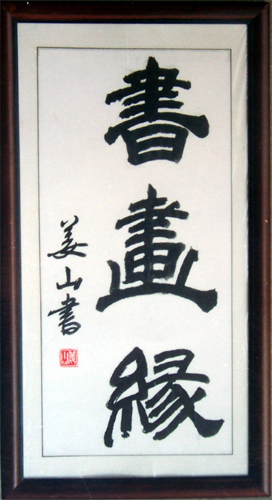 書畫緣
姜山書